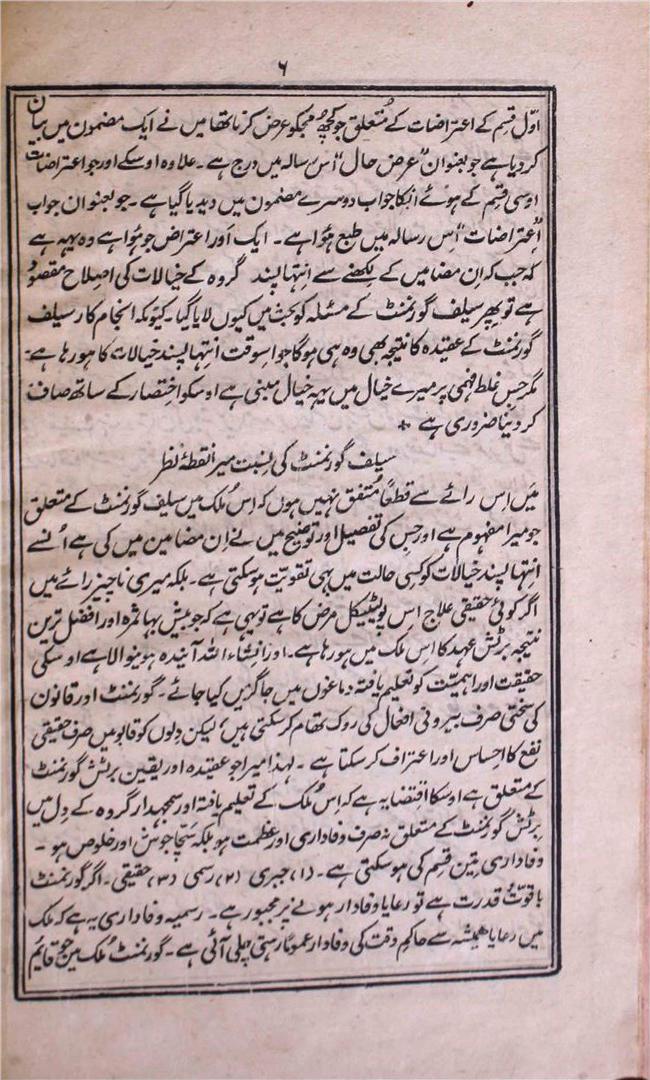 ۶
اوّل قسم کے اعتراضات کے متعلق جو کچھ مجکو عرض کرنا تھا میں نے ایک مضمون میں بیان
کر دیا ہے جو بعنوان "عرض حال" اس رسالہ میں درج ہے۔ علاوہ اوسکے اور جو اعتراضات
اوسی قسم کے ہوئے اُنکا جواب دوسرے مضمون میں دیدیا گیا ہے۔ جو بعنوان جواب
اعتراضات" اِس رسالہ میں طبع ہُوا ہے۔ ایک اَور اعتراض جو ہُوا ہے وہ یہہ ہے
کہ جب کہ اِن مضامین کے لکھنے سے اِنتہا پسند گروہ کے خیالات کی اِصلاح مقصود
ہے تو پھر سیلف گورنمنٹ کے مسئلہ کو بحث میں کیوں لایا گیا۔ کیونکہ انجام کار سیلف
گورنمنٹ کے عقیدہ کا نتیجہ بھی وہ ہی ہوگا جو اسوقت اِنتہا پسند خیالات کا ہو رہا ہے۔
مگر جس غلط فہمی پر میرے خیال میں یہہ خیال مبنی ہے اوسکو اختصار کے ساتھ صاف
کر دینا ضروری ہے ٭
سیلف گورنمنٹ کی نسبت میرا نقطۂ نظر
مَیں اِس رائے سے قطعاً مُتفق نہیں ہوں کہ اِس مُلک میں سیلف گورنمنٹ کے متعلق
جو میرا مفہوم ہے اور جس کی تفصیل اور توضیح میں نے اِن مضامین میں کی ہے اُنسے
اِنتہا پسند خیالات کو کسی حالت میں بھی تقویت ہو سکتی ہے۔ بلکہ میری ناچیز رائے میں
اگر کوئی حقیقی علاج اِس پولیٹیکل مرض کا ہے تو یہی ہے کہ جو بیش بہا ثمرہ اور افضل ترین
نتیجہ برٹش عہد کا اِس ملک میں ہو رہا ہے۔ اور انشاء اللہ آیندہ ہونیوالا ہے اوسکی
حقیقت اور اہمیت کو تعلیم یافتہ دماغوں میں جاگزیں کیا جائے۔ گورنمنٹ اور قانون
کی سختی صرف بیرونی افعال کی روک تھام کر سکتی ہیں، لیکن دِلوں کو قابو میں صرف حقیقی
نفع کا احساس اور اعتراف کر سکتا ہے۔ لہذا میرا جو عقیدہ اور یقین برٹش گورنمنٹ
کے متعلق ہے اوسکا اقتضا یہ ہے کہ اِس مُلک کے تعلیم یافتہ اور سمجھدار گروہ کے دِل میں
برٹش گورنمنٹ کے متعلق نہ صرف وفاداری اور عظمت ہو بلکہ سچّا جوش اور خلوص ہو۔
وفاداری تین قسم کی ہو سکتی ہے۔ (۱) جبری (۲) رسمی (۳) حقیقی۔ اگر گورنمنٹ
باقوّت قدرت ہے تو رعایا وفادار ہونے پر مجبور ہے۔ رسمیہ وفاداری یہ ہے کہ ملک
میں رعایا ہمیشہ سے حاکم وقت کی وفادار عموماً رہتی چلی آئی ہے۔ گورنمنٹ مُلک میں جو قایم